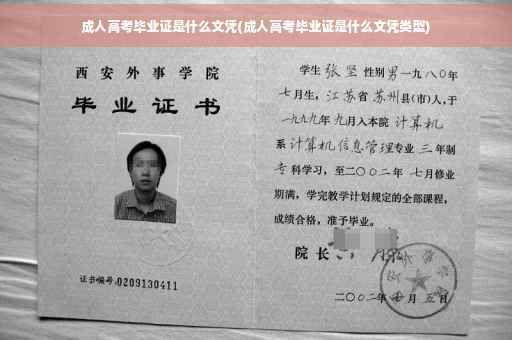 成人高考毕业证是什么文凭(成人高考毕业证是什么文凭类型)
西安外事学院
毕业证书
证书编号:0209130411
学生 张坚 性别 男 一九八〇年
七月生，江苏省 苏州县(市)人,于
一九九九年 九月入本院 计算机
系 计算机信息管理专业 三 年制
专科学习，至二〇〇二年 七月修业
期满，学完教学计划规定的全部课程，
成绩合格，准予毕业。
院长
二〇〇二年 月 五日